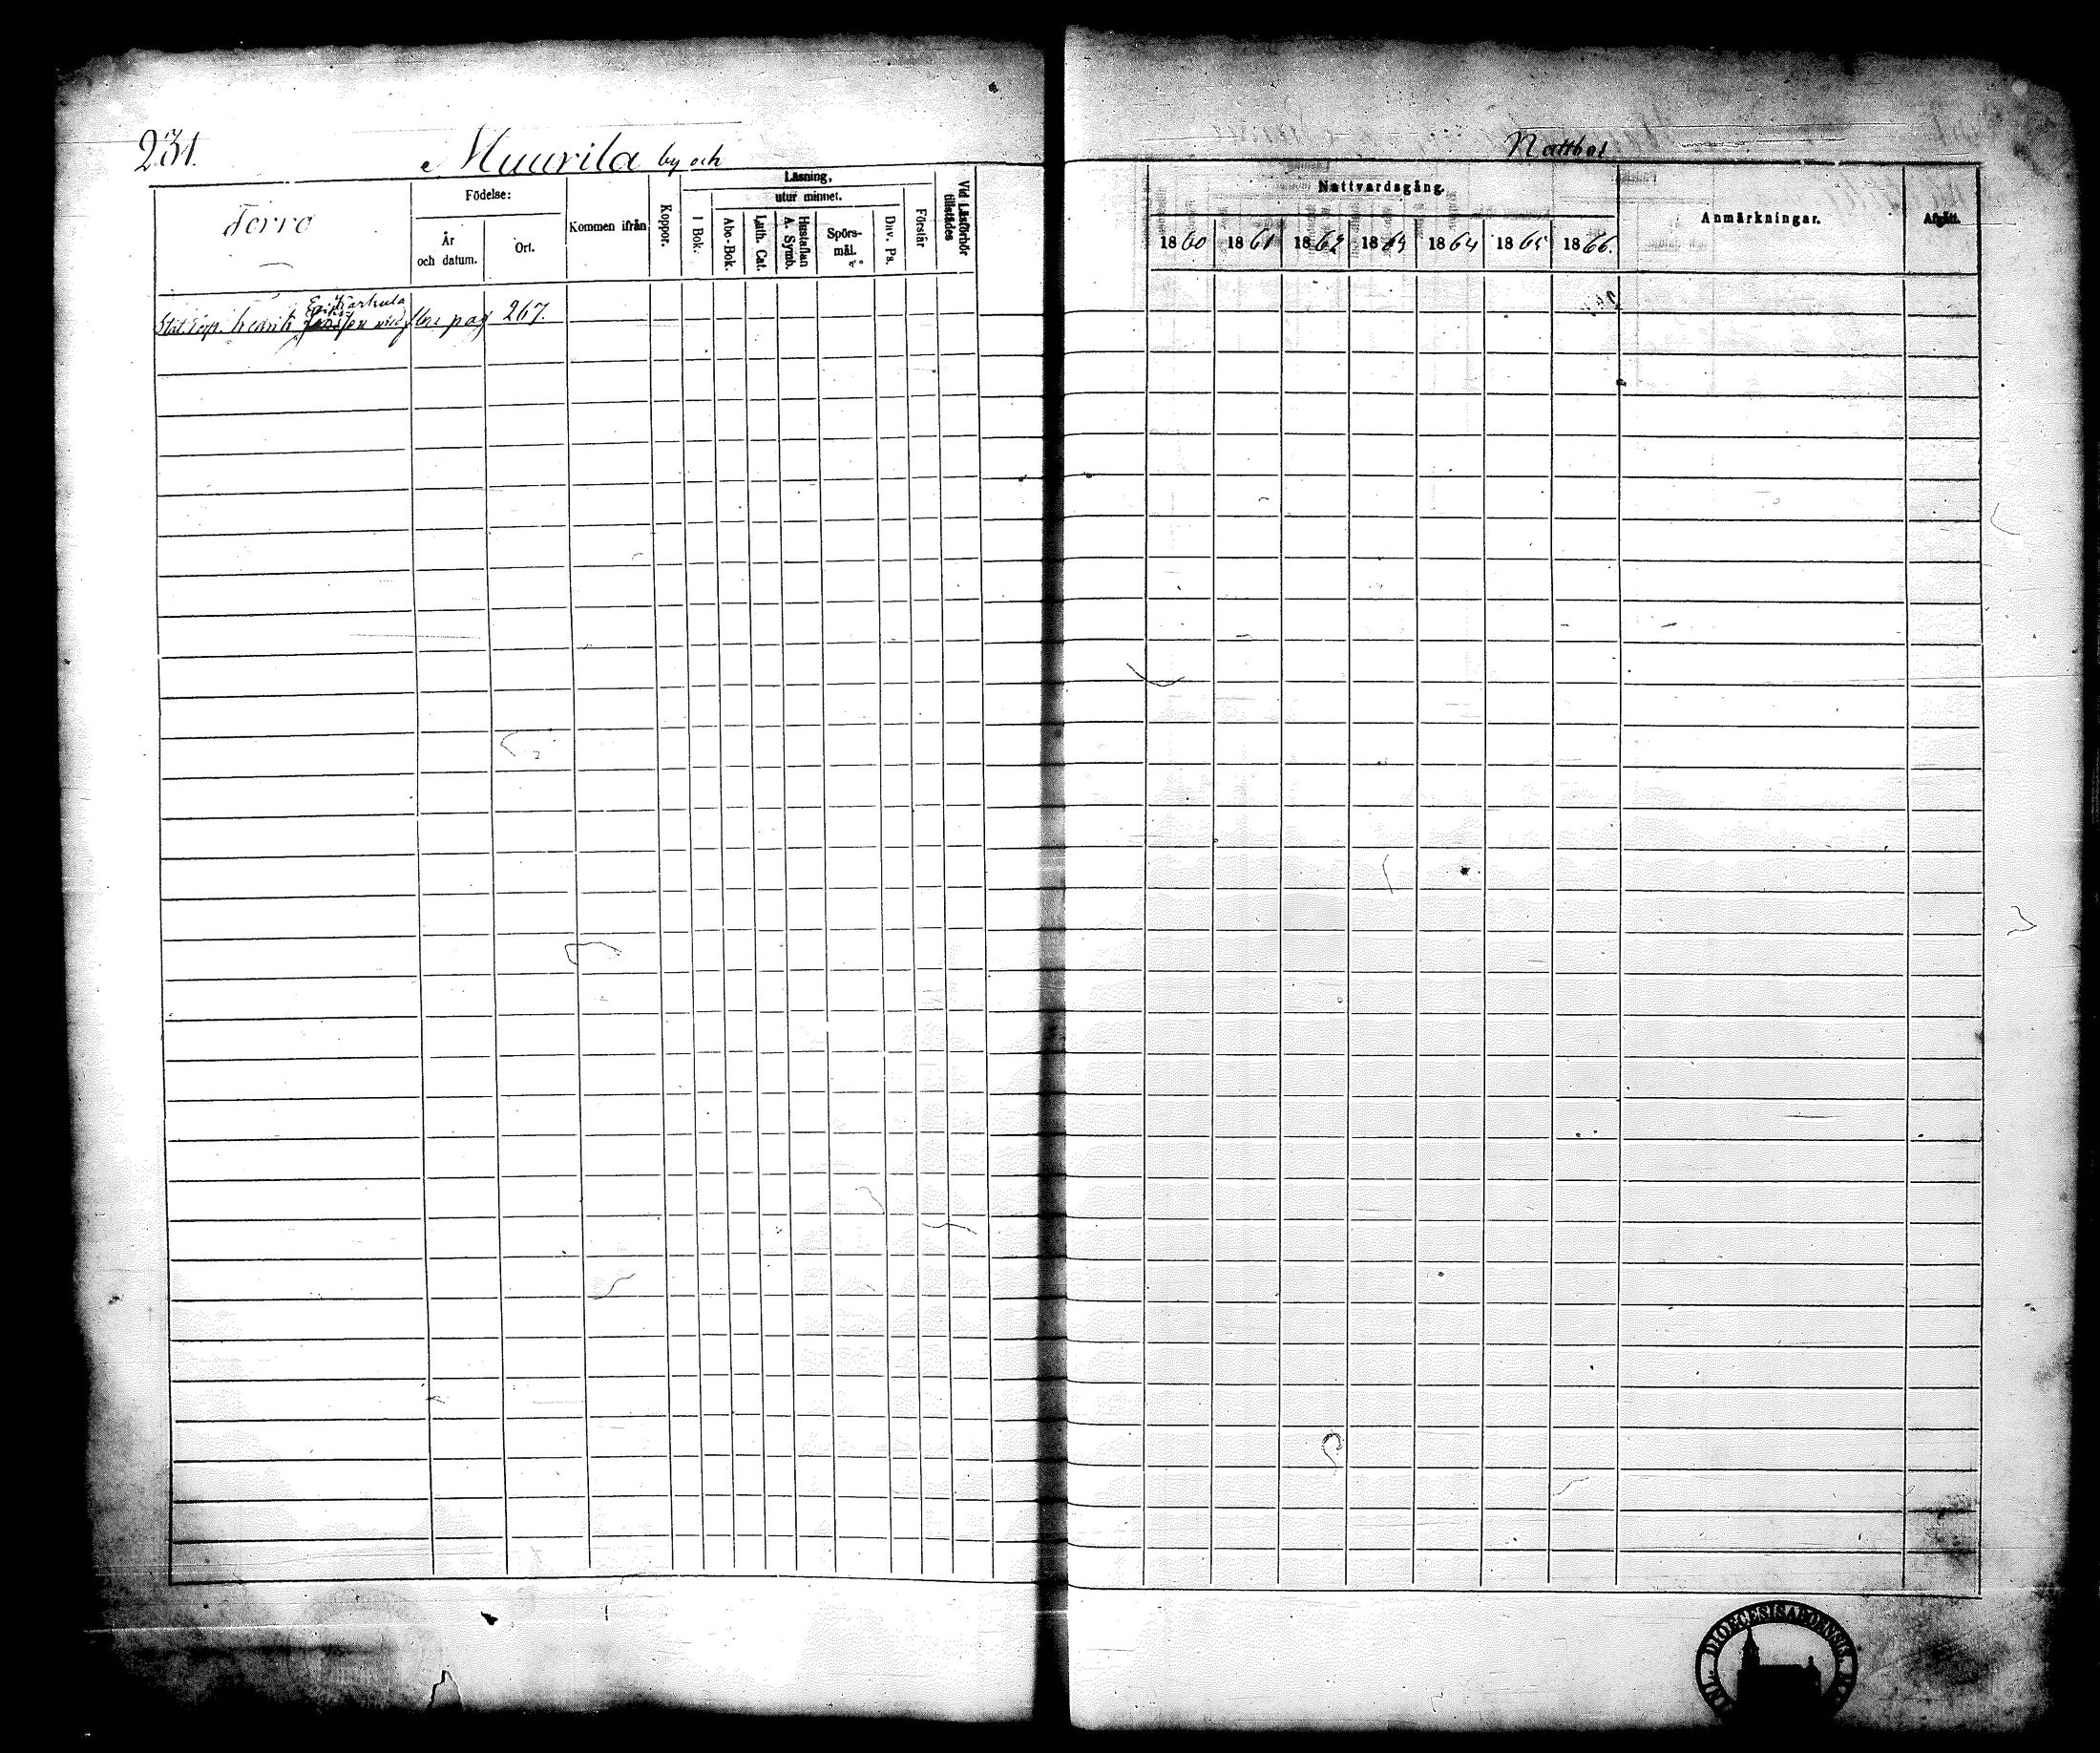 231.
Muurila by och
Nattbol
Torro
Födelse:
År
och datum.
Ort.
Kommen ifrån
Koppor.
Läsning,
utur minnet.
I Bok.
Abc-Bok.
Luth. Cat.
Hustaflan
A. Symb.
Spörs-
mål.
Dav. Ps.
Förstår
Vid Läsförhör
tillstädes
Nattvardsgång.
1860
1861
1862
1863
1864
1865
1866.
Anmärkningar.
Afgått.
Karhula
Henrik med pag 267.
DIOECESIS ABOENSIS